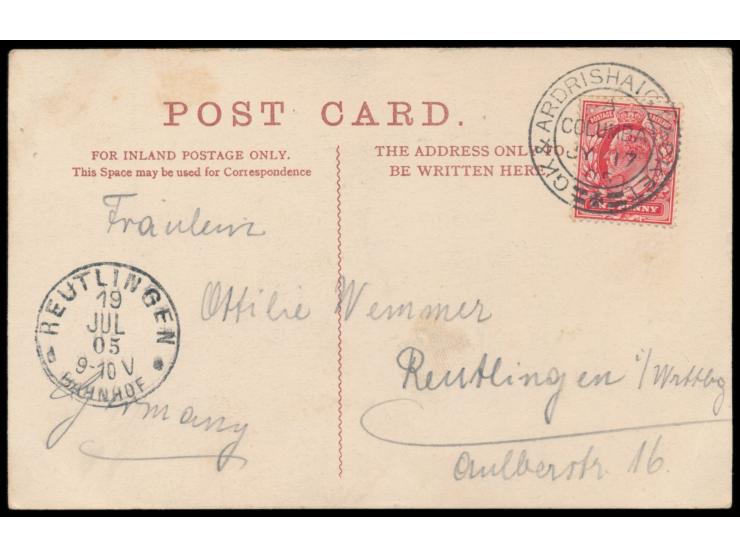 POST CARD.
FOR INLAND POSTAGE ONLY.
This Space may be used for Correspondence
THE ADDRESS ONLY TO
BE WRITTEN HERE
GK & ARDRISHAIG PACKET
COLUMBA
JY 17
POSTAGE
PENNY
Fräulein
Ottilie Wemmer
Reutlingen i/Wrttbg
Aulberstr. 16.
Germany
REUTLINGEN
19
JUL
05
9-10 V
BAHNHOF